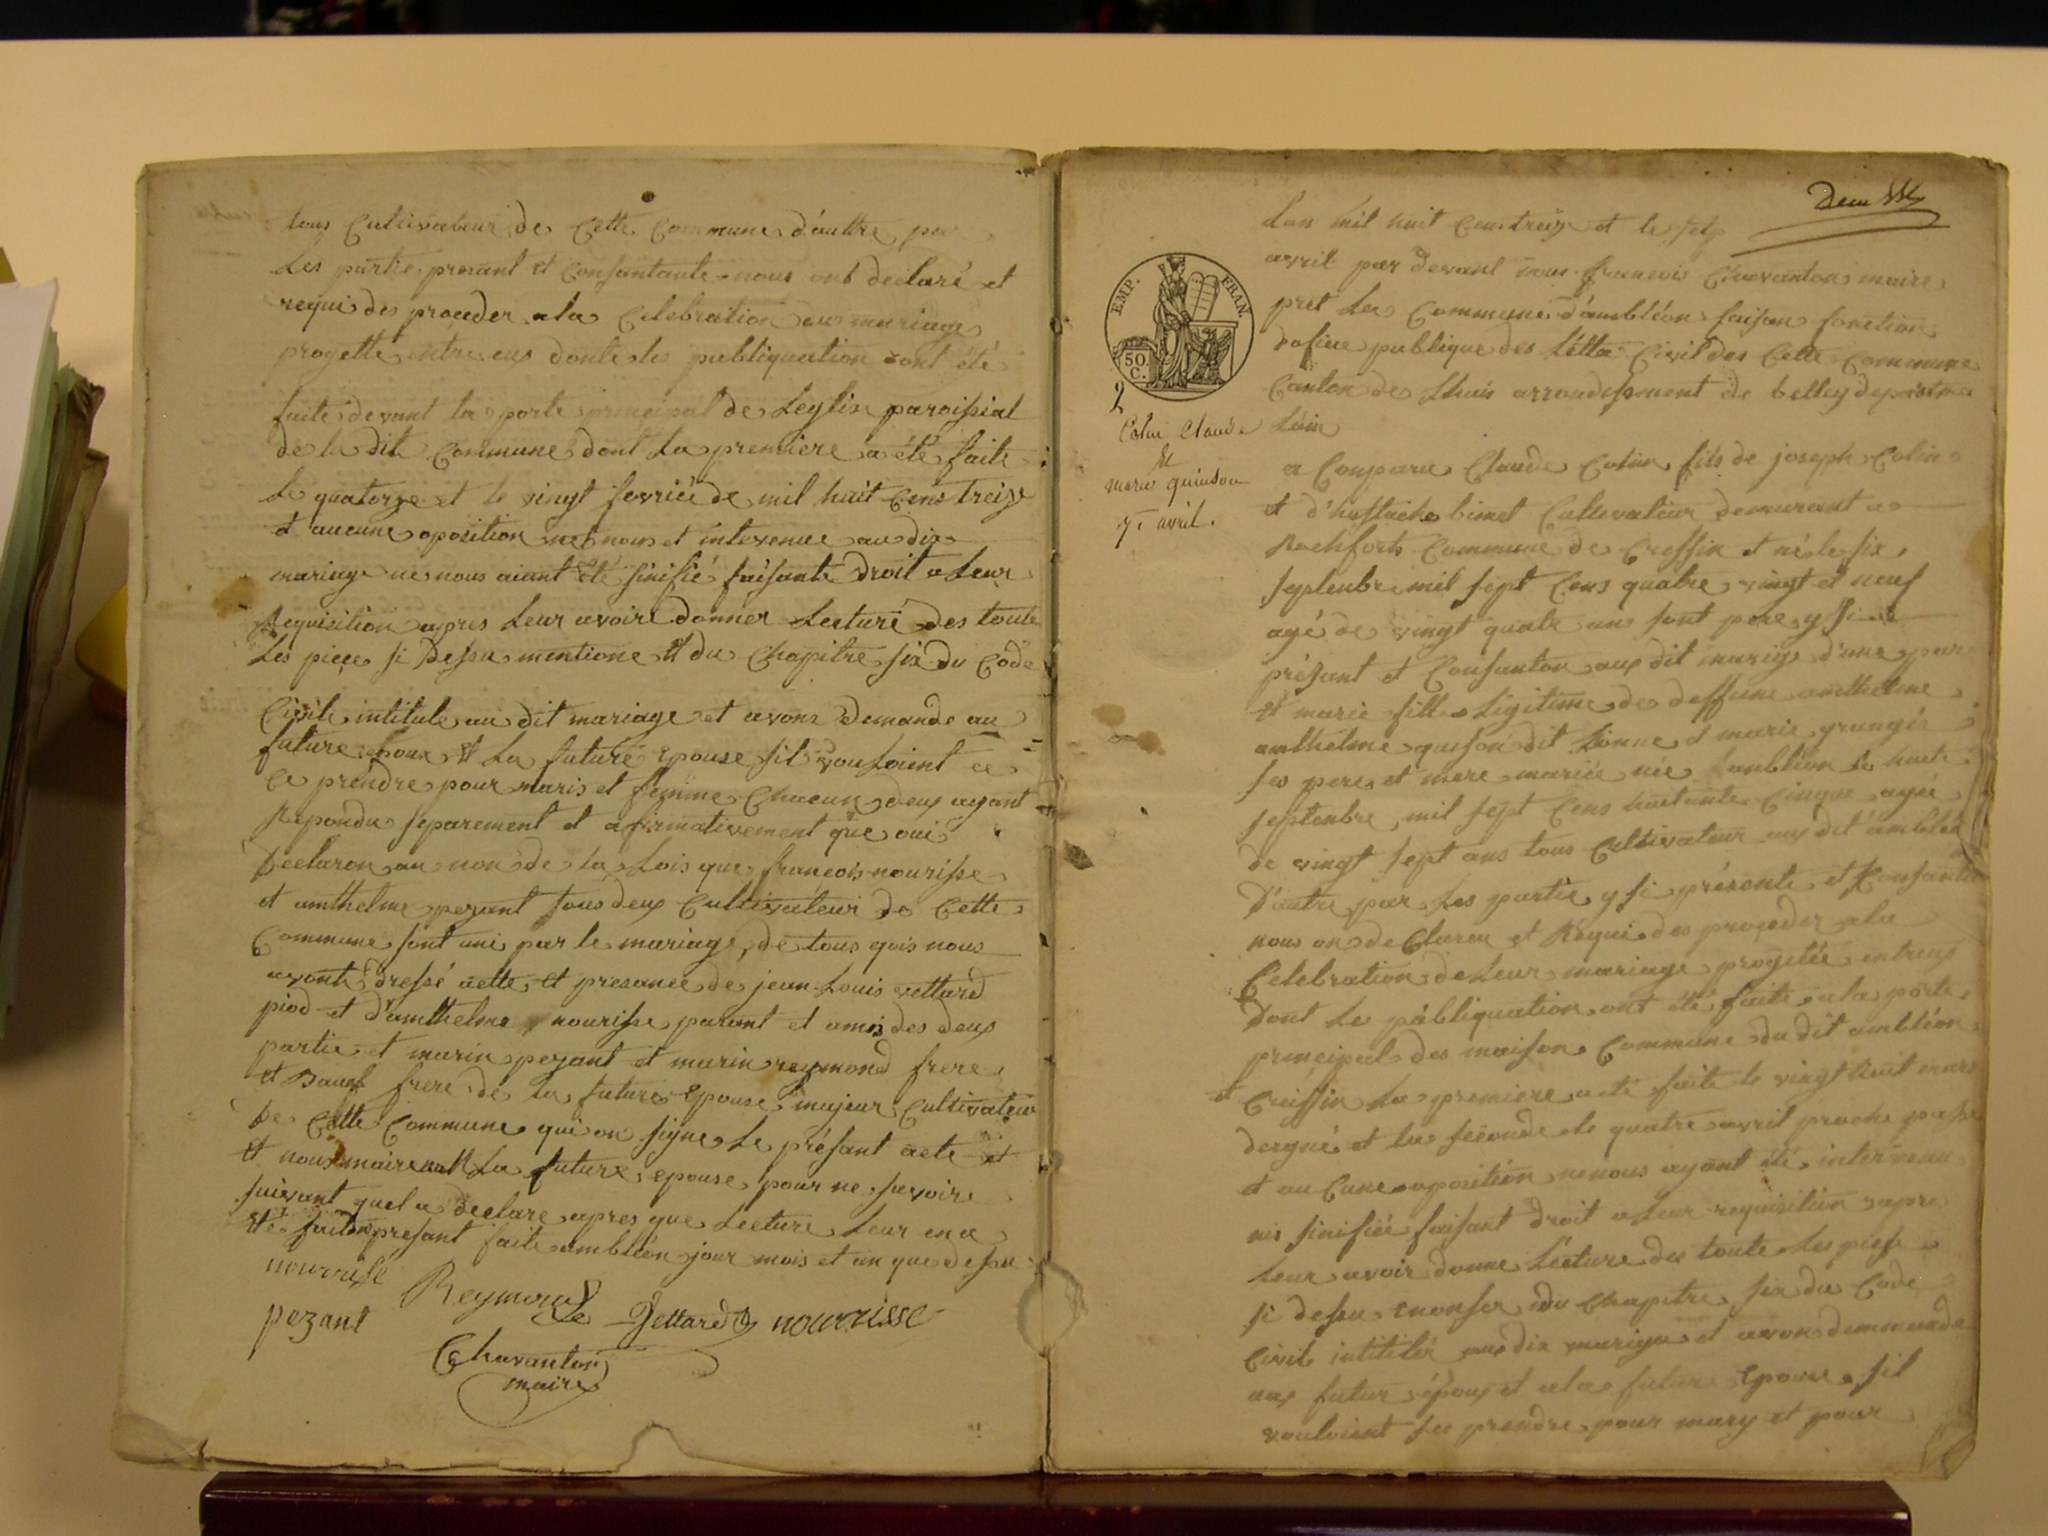 tous Cultivateur de Cette Commune d'auttre par
Les partie presant et Consantante nous ont declaré et
requi des proceder a la Celebration du mariage
progetté intre eus donte les publiquation ont été
faite devant la porte principal de Leglise paroissial
de la dite Commune dont La premiere a été faite
Le quatorze et le vingt fevrié de mil huit Cens treize
et aucune oposition ne nous et intevenue au dix
mariage ne nous aiant été sinifié faisante droit a Leur
Requisition apres Leur avoire donner Lecture des toute
Les piece si Dessu mentione et du Chapitre six du Code
Civile intitule au dit mariage et avons Demande au
future epoux et La future epouse sil vouloient ce
Ce prendre pour maris et femme Chacun deux ayant
Repondu separement et afirmativement que oui
Declaron au non de la Lois que francois nourisse
et amthelme pezant tous deux Cultivateur de Cette
Commune sont uni par le mariage, de tous qois nous
avonts dressé actte et presance de jean Louis vettard
piod et d'amthelme nourisse parant et amis des deux
partie et marin pezant et marin reymond frere
et Bauf frere de la future epouse majeur Cultivateur
De Cette Commune qui on signe Le présant acte et
et nous maire La future epouse pour ne savoire
suivant quel a declare apres que Lecture Leur en a
été fait presant faite ambléon jour mois et an que dessu
nourrisse Reymond
pezant Vettard nourrisse
Chavanton
maire
Deux
Lan mil huit Cens treize et le sept
avril par devant nous francois Chavanton maire
pret La Commune d'ambléon faisan fonction
dofisie publique des Létta Civil des Cette Commune
Canton de Lhuis arrondissement de belley departma
Lain
EMP. FRAN.
50 C.
2
Colin Claude
et
marie quinson
7 avril.
a Conparu Claude Colin fils de joseph Colin
et d'hustache binet Cultivateur demurant a
Rochforts Commune de Cressin et né le six
septenbre mil sept Cens quatre vingt et neuf
agé de vingt quatre ans sont pere y si
présant et Consanton aux dit mariage d'une par
et marie fille Légitime de deffunt amthelme
amthelme quison dit Lionne et marie grangér
ses pere et mere mariée née ambléon le huite
septenbre mil sept Cens huitante Cinque agée
de vingt sept ans tous Cultivateur aux dit ambléon
D'autre par Les partie y si présente et Consantan
nous on de Clareu et Requi des proceder a la
Celebration de Leur mariage progetée entreux
Dont Le publiquation ont été faite a la porte
principal des maison Commune du dit ambléon
et Creissin La premiere a été faite le vingt huit mars
dergné et La seconde le quatre avril proche passe
et au Cune oposition ne nous ayant été intervenu
nis sinifiée faisant droit a Leur requisition apre
Leur avoir donne Lécture des toute Les piese
si dessu du Chapitre six du Code
Civil intitiler aux dix mariage et avon demmande
aux futur épous et a la future epouse sil
vouloient se prendre pour mary et pour